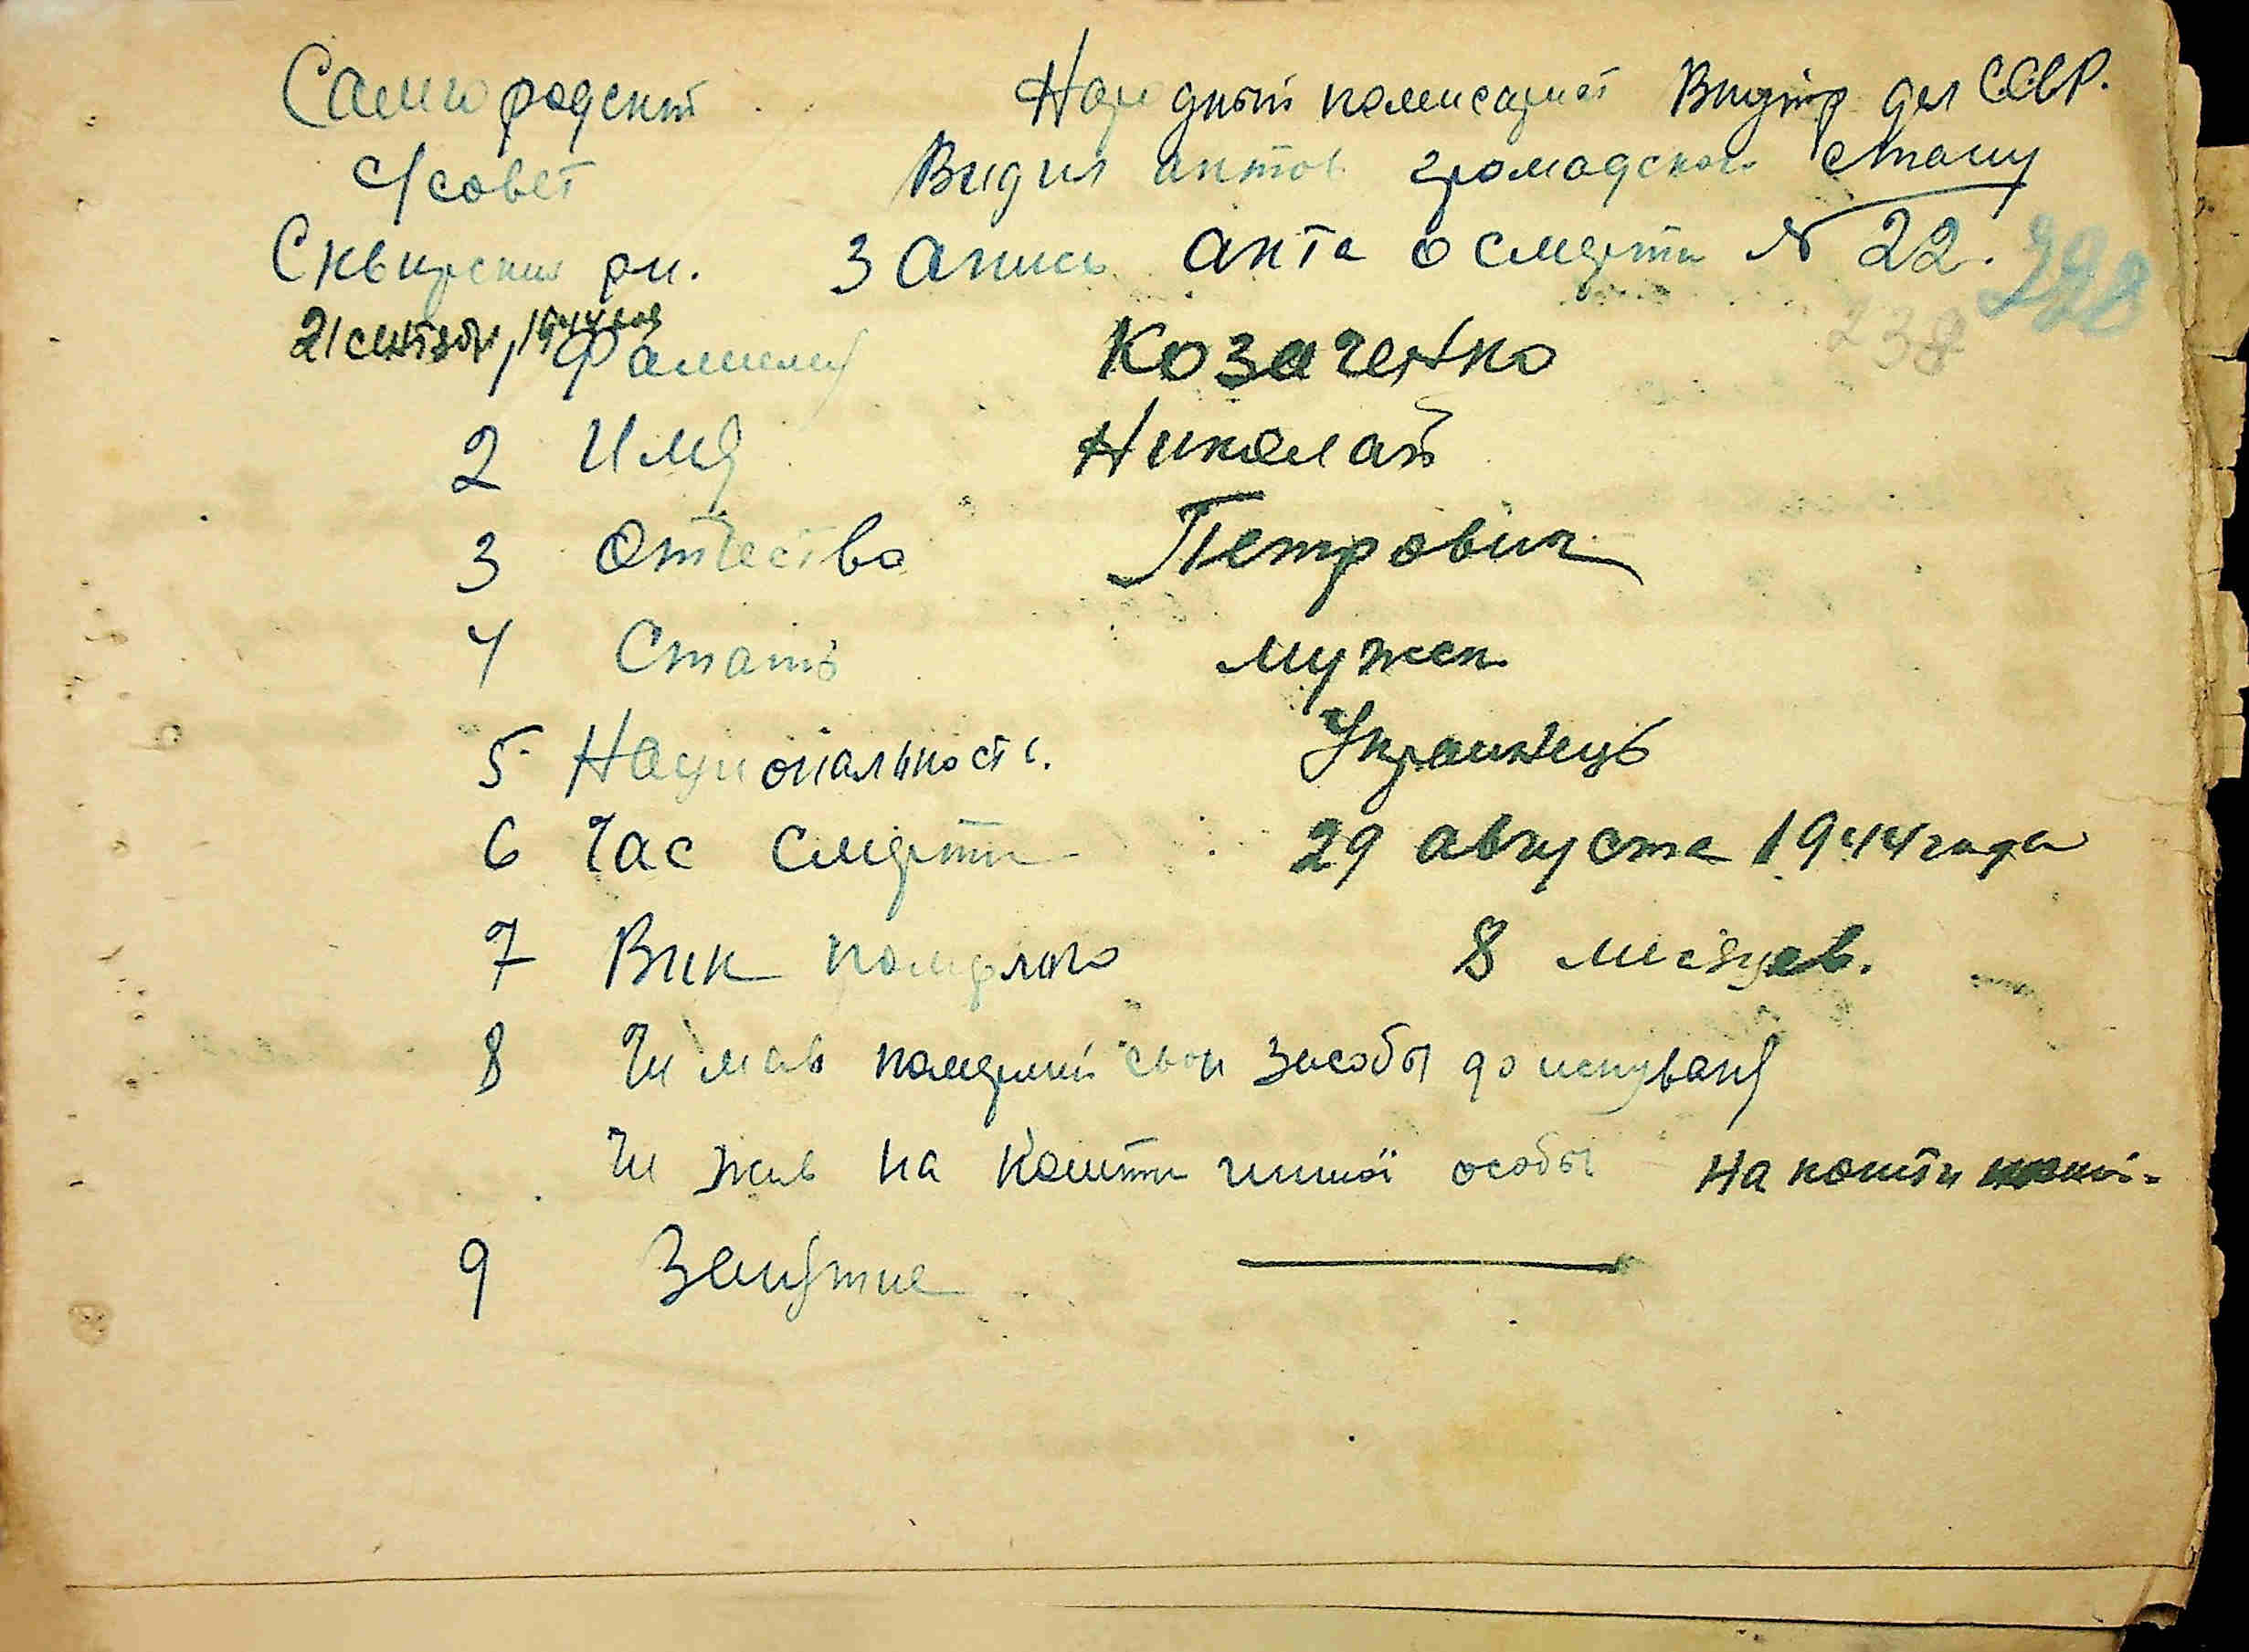 Самгородский Народный комисариат Внутр дел СССР.
с/совет Видил актов громадского стану
Сквирский рн. Запись акта о смерти № 22. 228
238
21 сентября 1944 год Фамилия Козаченко
2 Имя Николай
3 Отчество Петрович
4 Стать мужск.
5. Национальность. Украинець
6 Час смерти 29 августа 1944 года
7 Вик померлого 8 месяцев.
8 Чи мав померший свои засобы до иснуваня
Чи жив на кошти иншої особы на кошти
9 Заняття